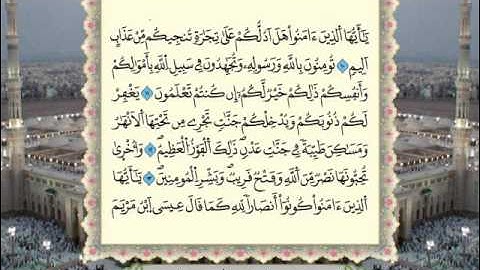 يَٰٓأَيُّهَا ٱلَّذِينَ ءَامَنُوا۟ هَلْ أَدُلُّكُمْ عَلَىٰ تِجَٰرَةٍ تُنجِيكُم مِّنْ عَذَابٍ
أَلِيمٍ ۝١٠ تُؤْمِنُونَ بِٱللَّهِ وَرَسُولِهِۦ وَتُجَٰهِدُونَ فِى سَبِيلِ ٱللَّهِ بِأَمْوَٰلِكُمْ
وَأَنفُسِكُمْ ذَٰلِكُمْ خَيْرٌ لَّكُمْ إِن كُنتُمْ تَعْلَمُونَ ۝١١ يَغْفِرْ
لَكُمْ ذُنُوبَكُمْ وَيُدْخِلْكُمْ جَنَّٰتٍ تَجْرِى مِن تَحْتِهَا ٱلْأَنْهَٰرُ
وَمَسَٰكِنَ طَيِّبَةً فِى جَنَّٰتِ عَدْنٍ ذَٰلِكَ ٱلْفَوْزُ ٱلْعَظِيمُ ۝١٢ وَأُخْرَىٰ
تُحِبُّونَهَا نَصْرٌ مِّنَ ٱللَّهِ وَفَتْحٌ قَرِيبٌ وَبَشِّرِ ٱلْمُؤْمِنِينَ ۝١٣ يَٰٓأَيُّهَا
ٱلَّذِينَ ءَامَنُوا۟ كُونُوٓا۟ أَنصَارَ ٱللَّهِ كَمَا قَالَ عِيسَى ٱبْنُ مَرْيَمَ